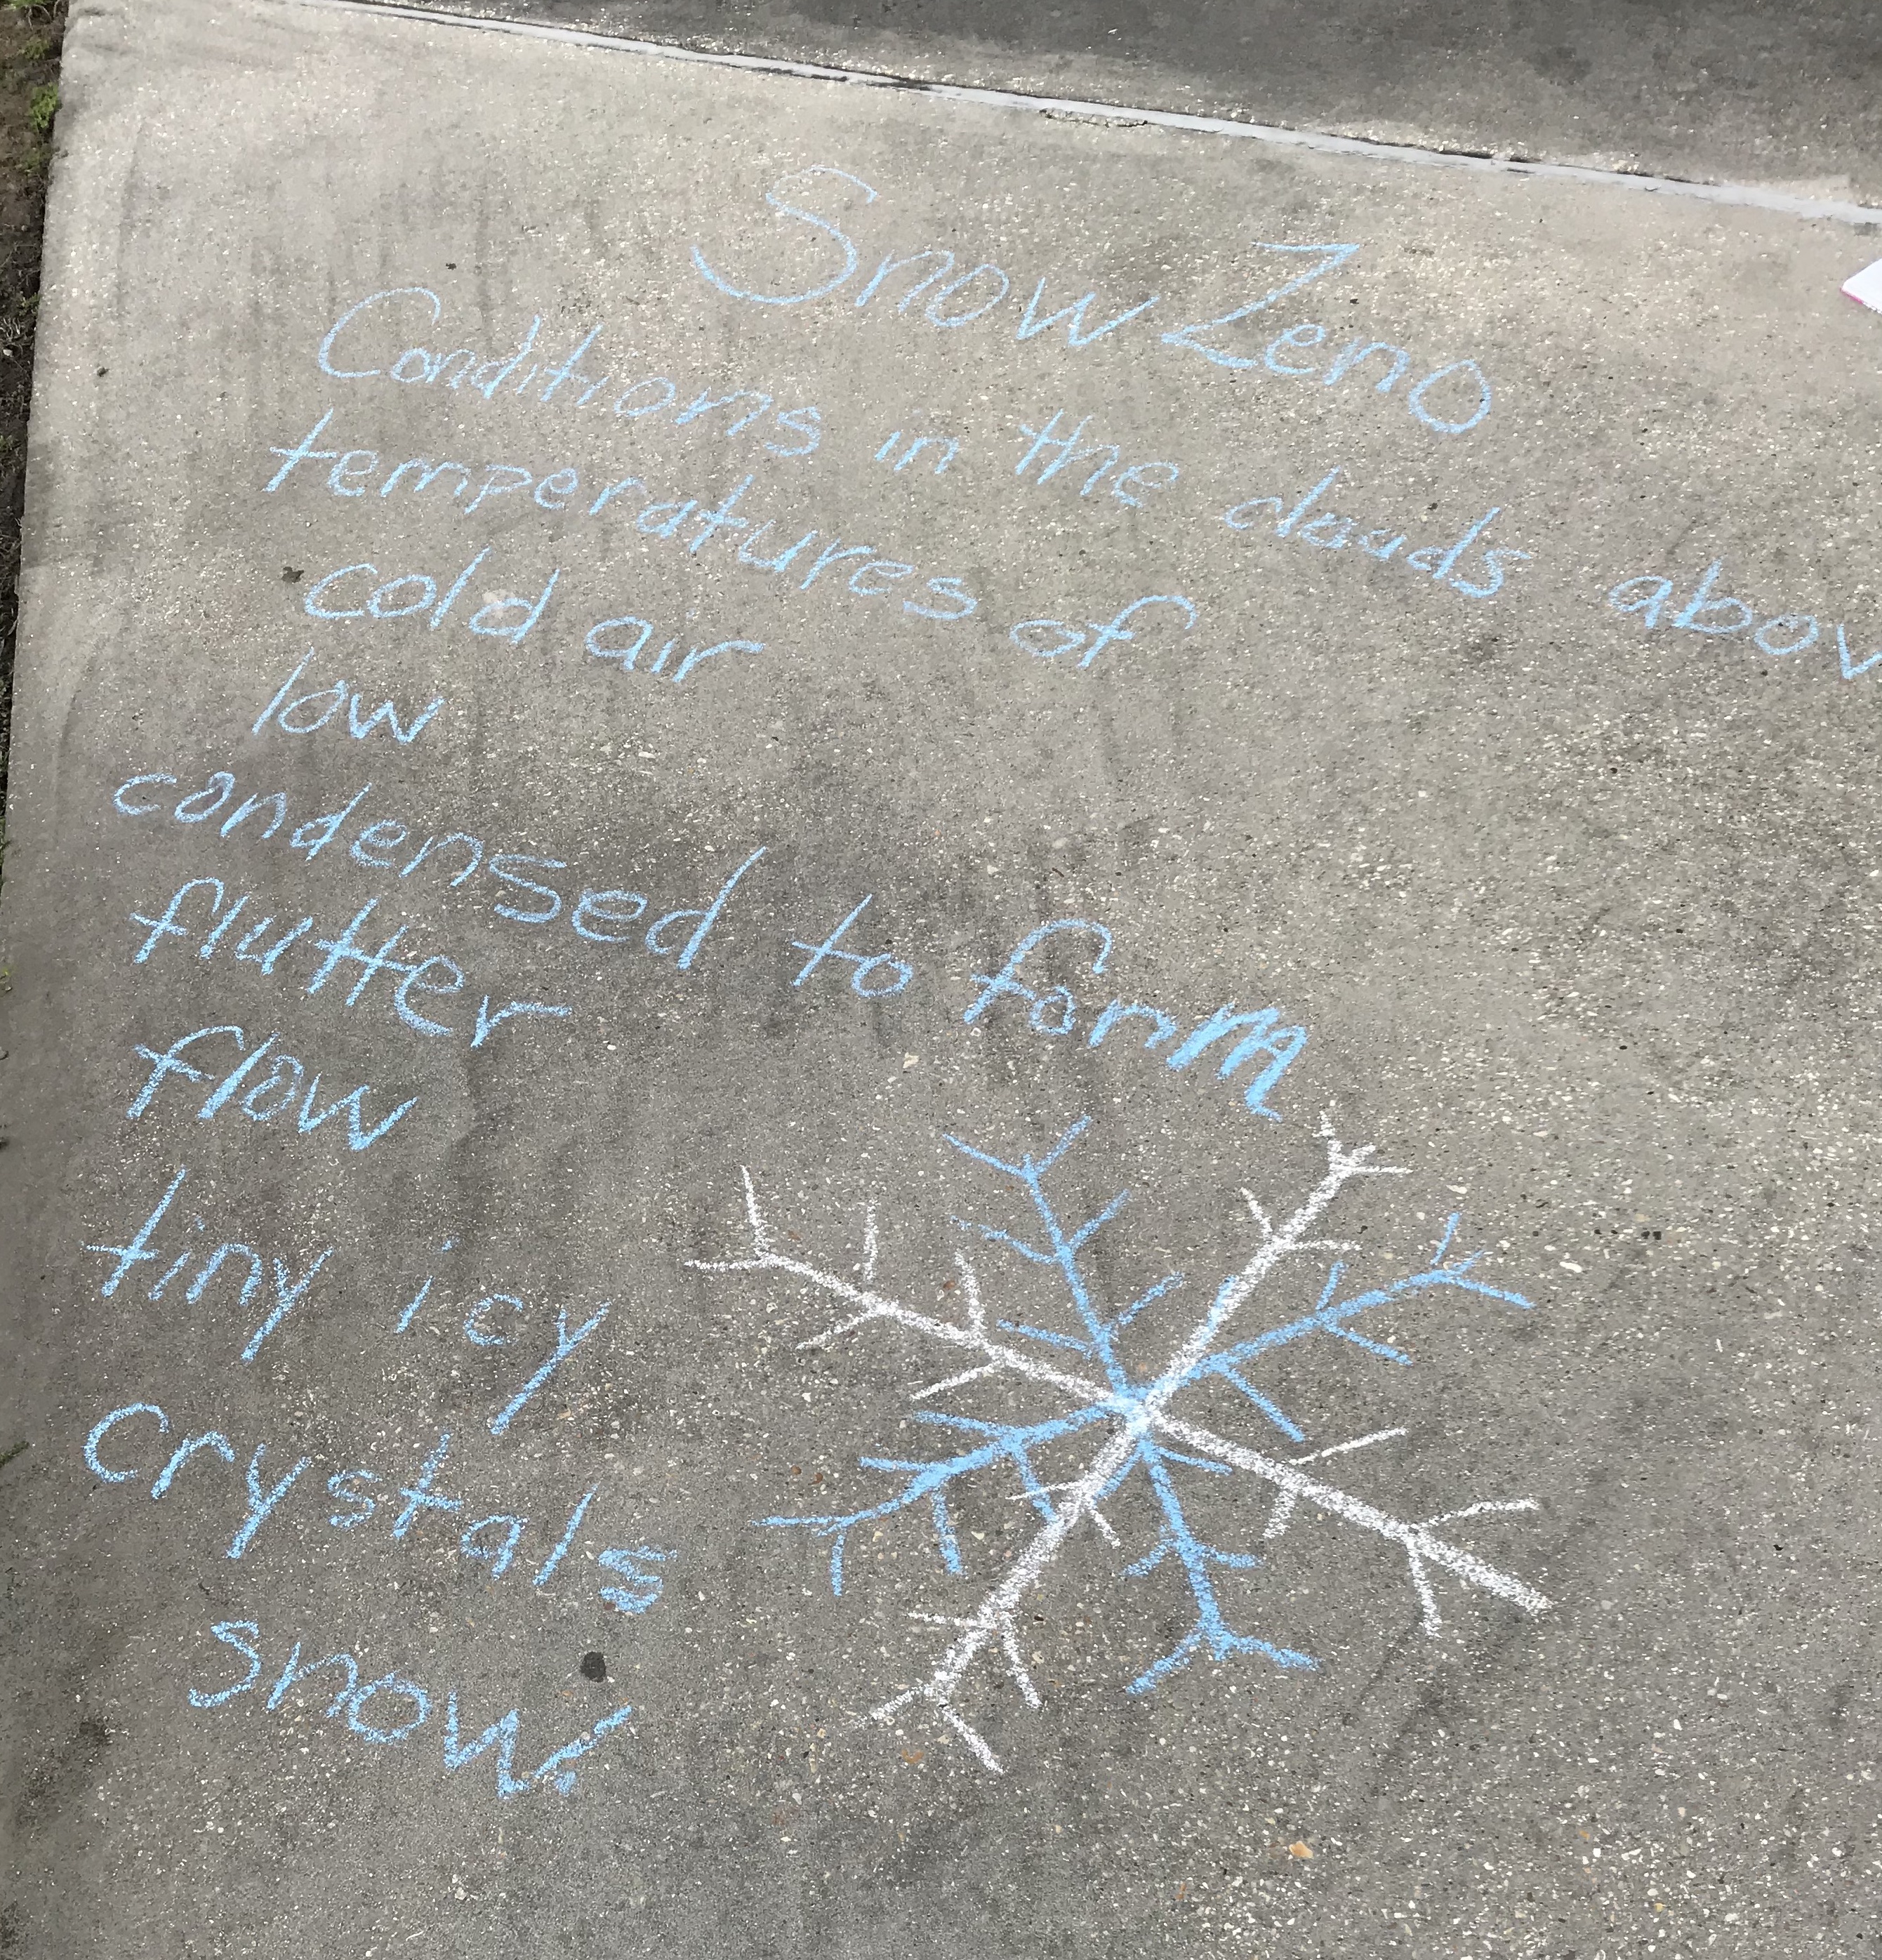 Snow Zeno
Conditions in the clouds abov
temperatures of
cold air
low
condensed to form
flutter
flow
tiny icy
crystals
snow!